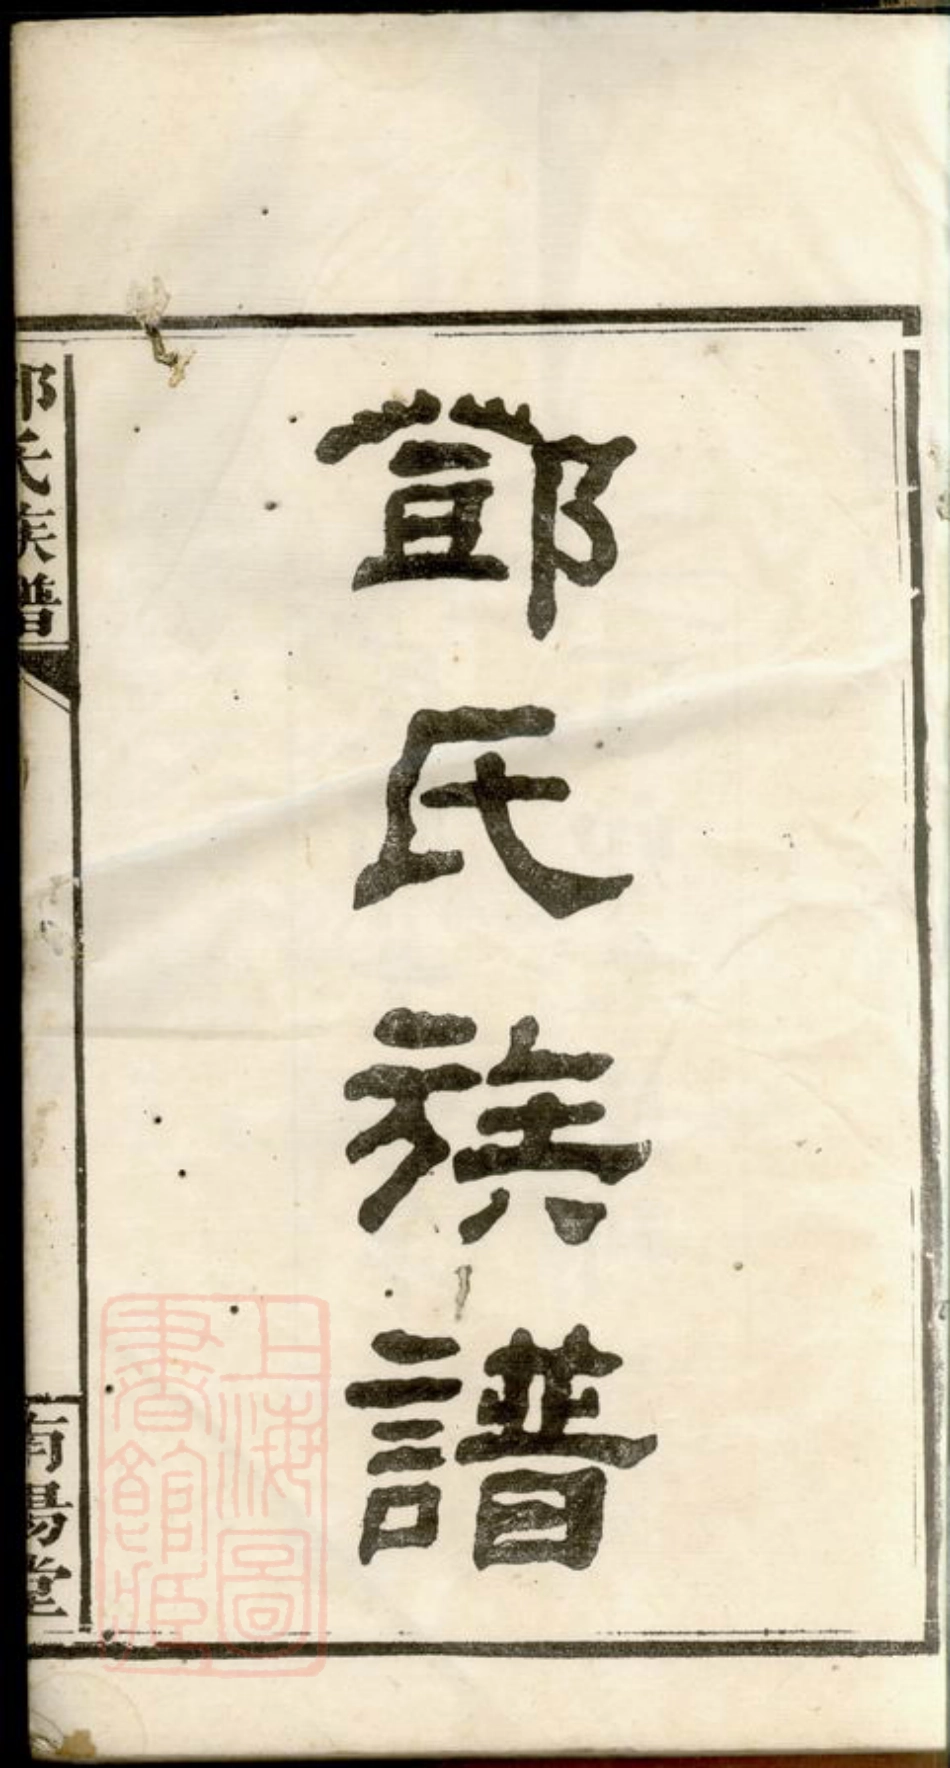 鄧氏族譜
鄧氏族譜
南陽堂
上海圖
書館藏